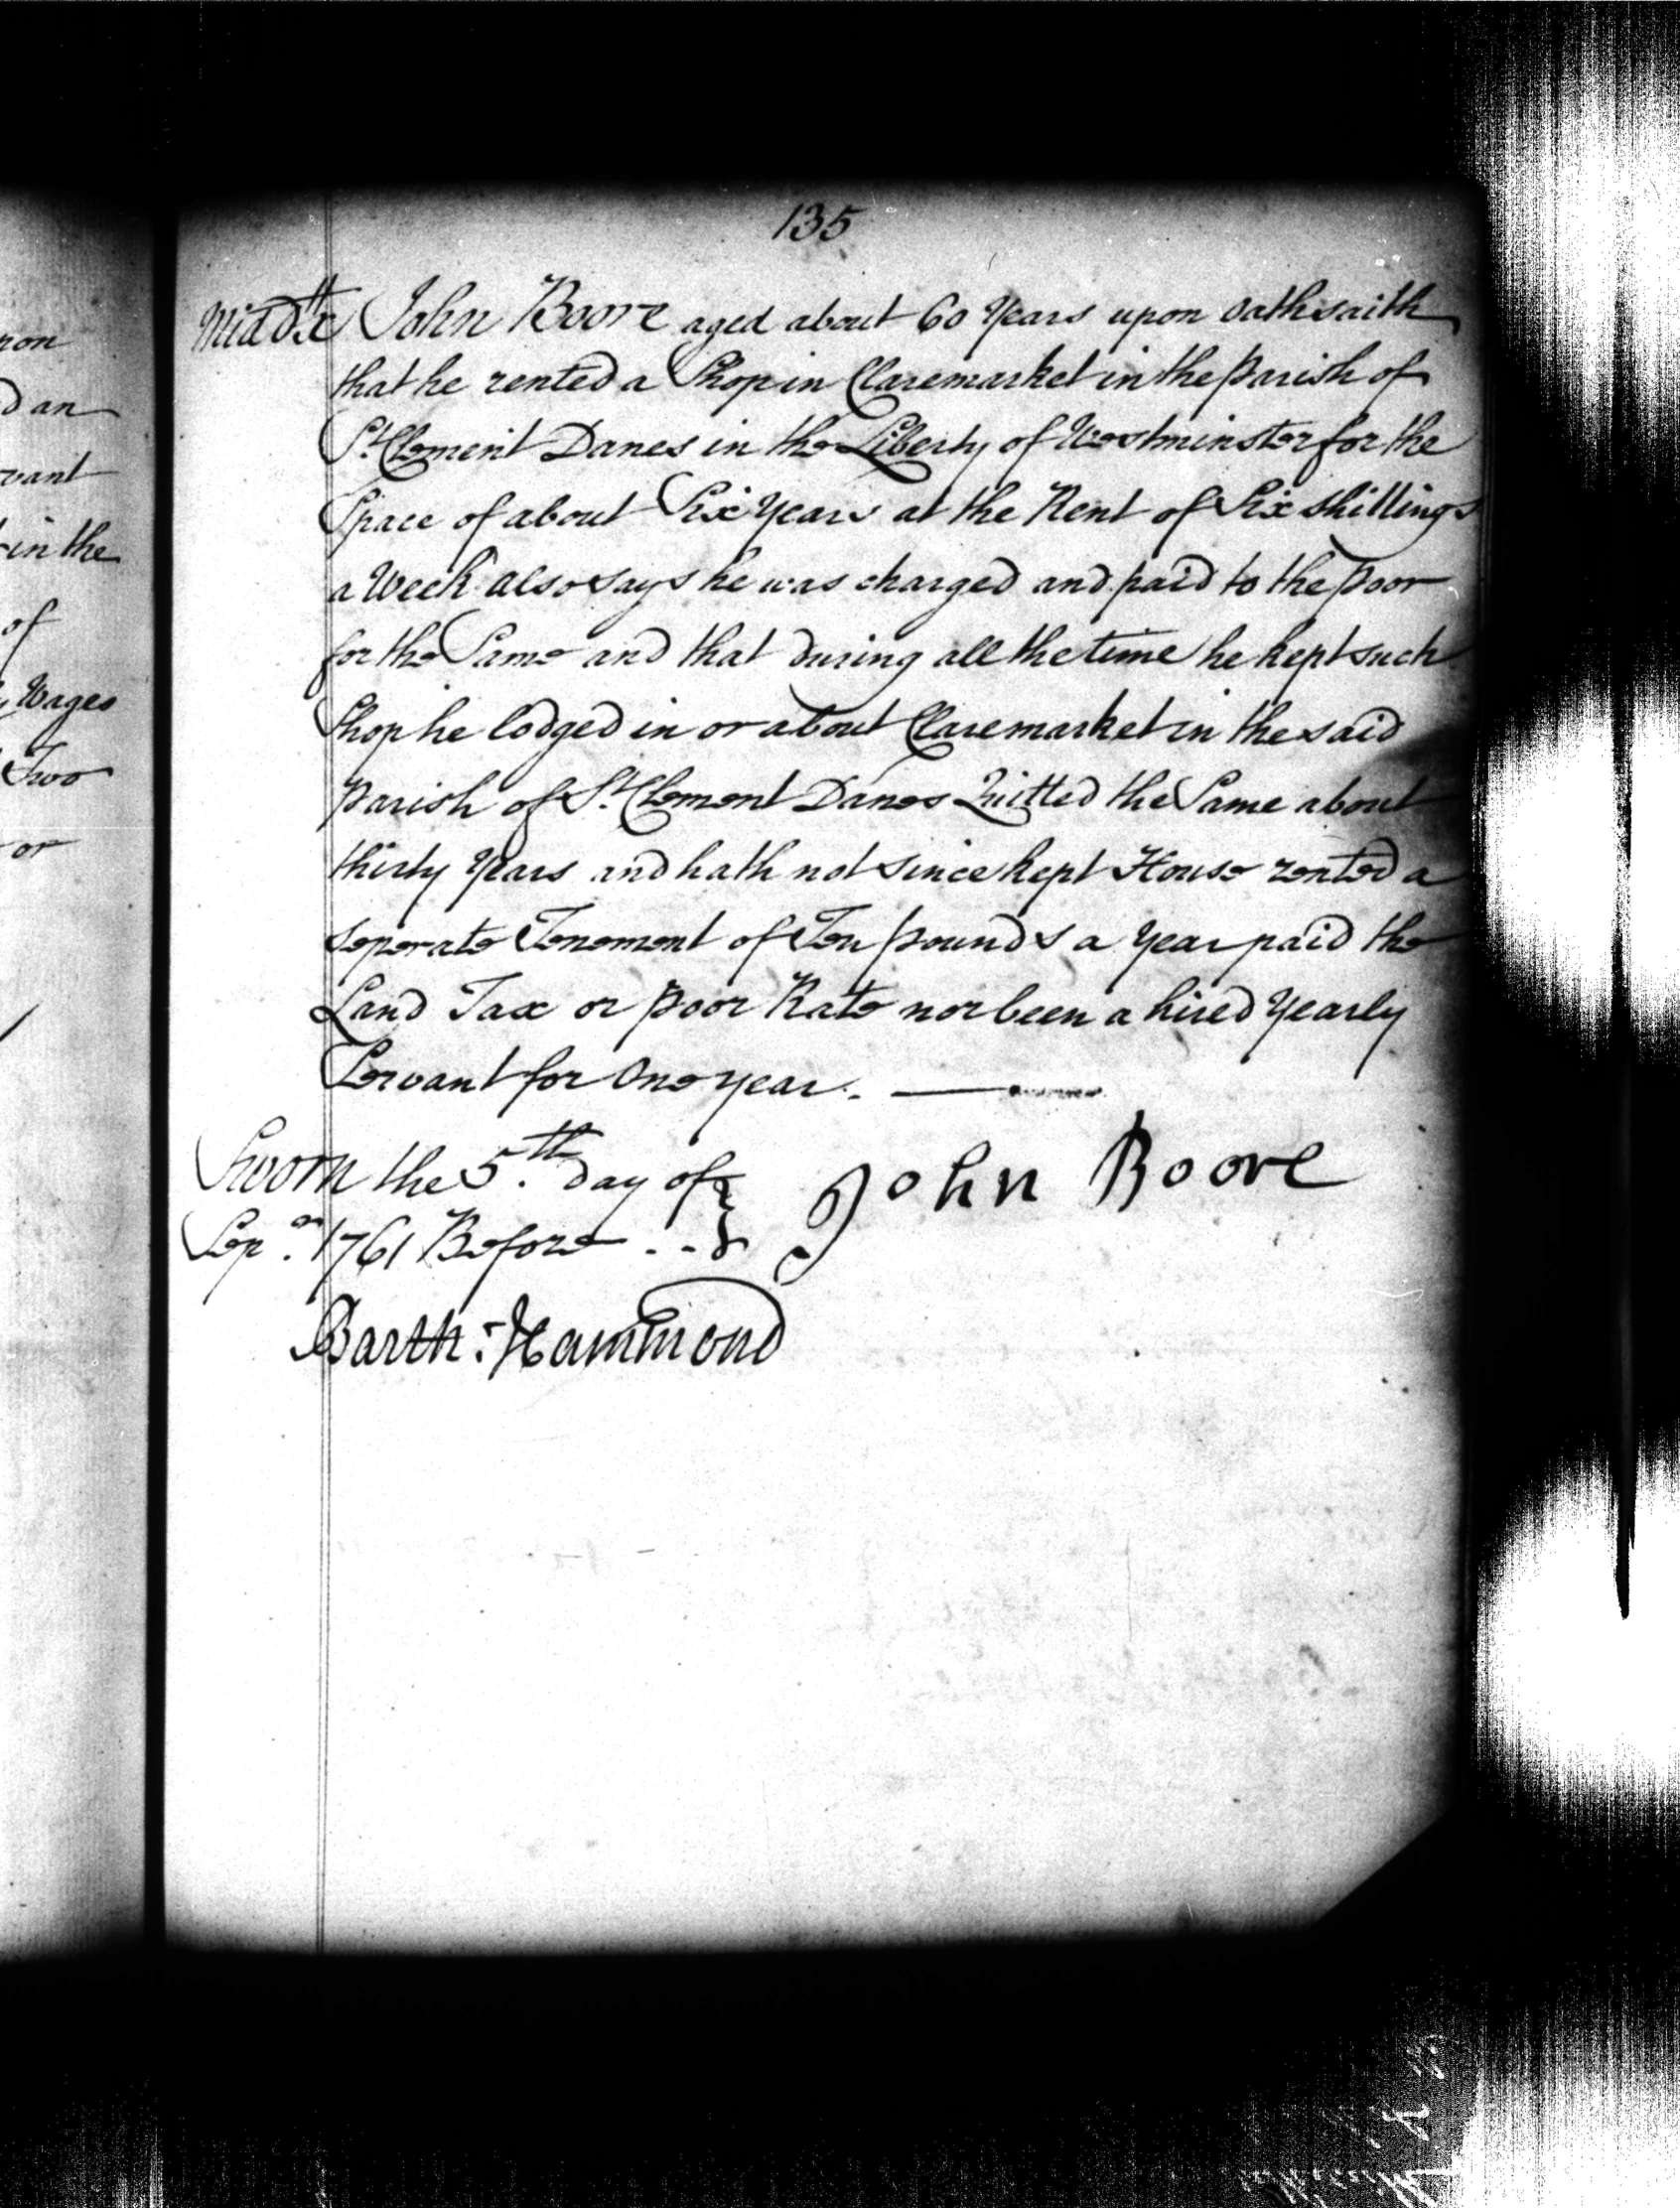 135
non
d an
vant
in the
of
Wages
Two
or
Middx John Boore aged about 60 Years upon Oath saith
that he rented a Shop in Claremarket in the Parish of
St. Clement Danes in the Liberty of Westminster for the
Space of about Six Years at the Rent of Six shillings
a Week also says he was charged and paid to the Poor
for the Same and that during all the time he kept such
Shop he lodged in or about Claremarket in the said
Parish of St. Clement Danes Quitted the Same about
thirty Years and hath not since kept House rented a
seperate Tenement of Ten pounds a Year paid the
Land Tax or Poor Rate nor been a hired Yearly
Servant for One year. —
Sworn the 5th. day of } John Boore
Sepr. 1761 Before . . }
Barth: Hammond